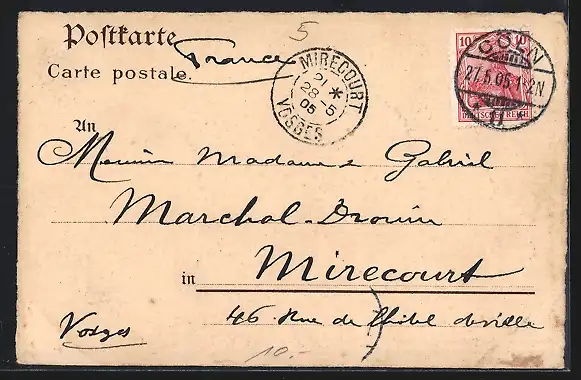 5
Postkarte
France
Carte postale.
MIRECOURT
21 *
28 - 5
05
VOSGES
10 10
DEUTSCHES REICH
CÖLN
27.5.05.1-2N
* 1
An
Madame Gabriel
Marchal-Drouin
in Mirecourt
46 Rue de
Vosges
10.-